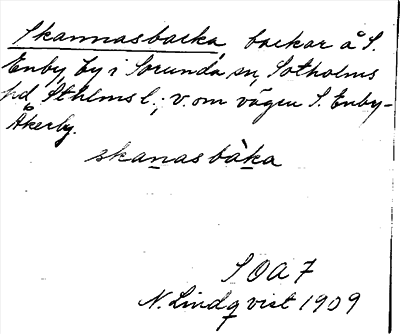 Skannasbacka, backar å S.
Enby, by i Sorunda sn, Sotholms
hd, Sthlms l.; v. om vägen S. Enby-
Åkerby.
skanasbàka
SOA 7
N. Lindqvist 1909